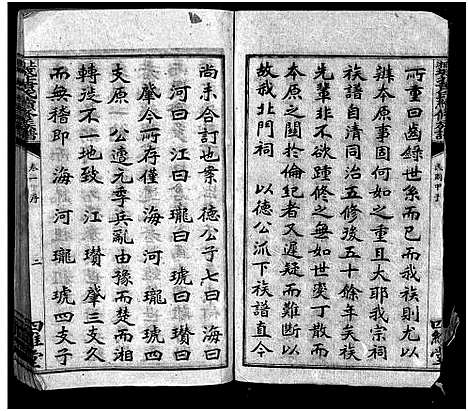 所重曰齒錄世系而已而我族則尤以
辨本原事固何如之重且大耶我宗祠
族譜自清同治五修後五十餘年矣族
先輩非不欲踵修之無如世变丁散而
本原之關於倫紀者又遲疑而難斷以
故我北門祠 以德公派下族譜直今
民國甲子
四維堂
尚未合訂也案 德公子七曰 海曰
河曰 江曰 瓏曰 琥曰 瓚曰
肇今所存僅 海 河 瓏 琥四
支原一 公遭元季兵亂由豫而楚而湘
轉徙不一其地 江 瓚 肇三支久
而無稽即 海 河 瓏 琥四支子
卷一 序
二
四維堂